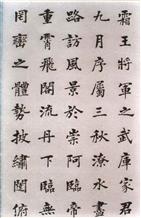 霜王將軍之武庫家君
九月序屬三秋潦水盡
路訪風景於崇阿臨帝
重霄飛閣流丹下臨無
岡巒之體勢披繡闥俯